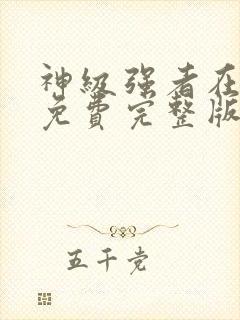 神级强者在
免费完整版
五千党